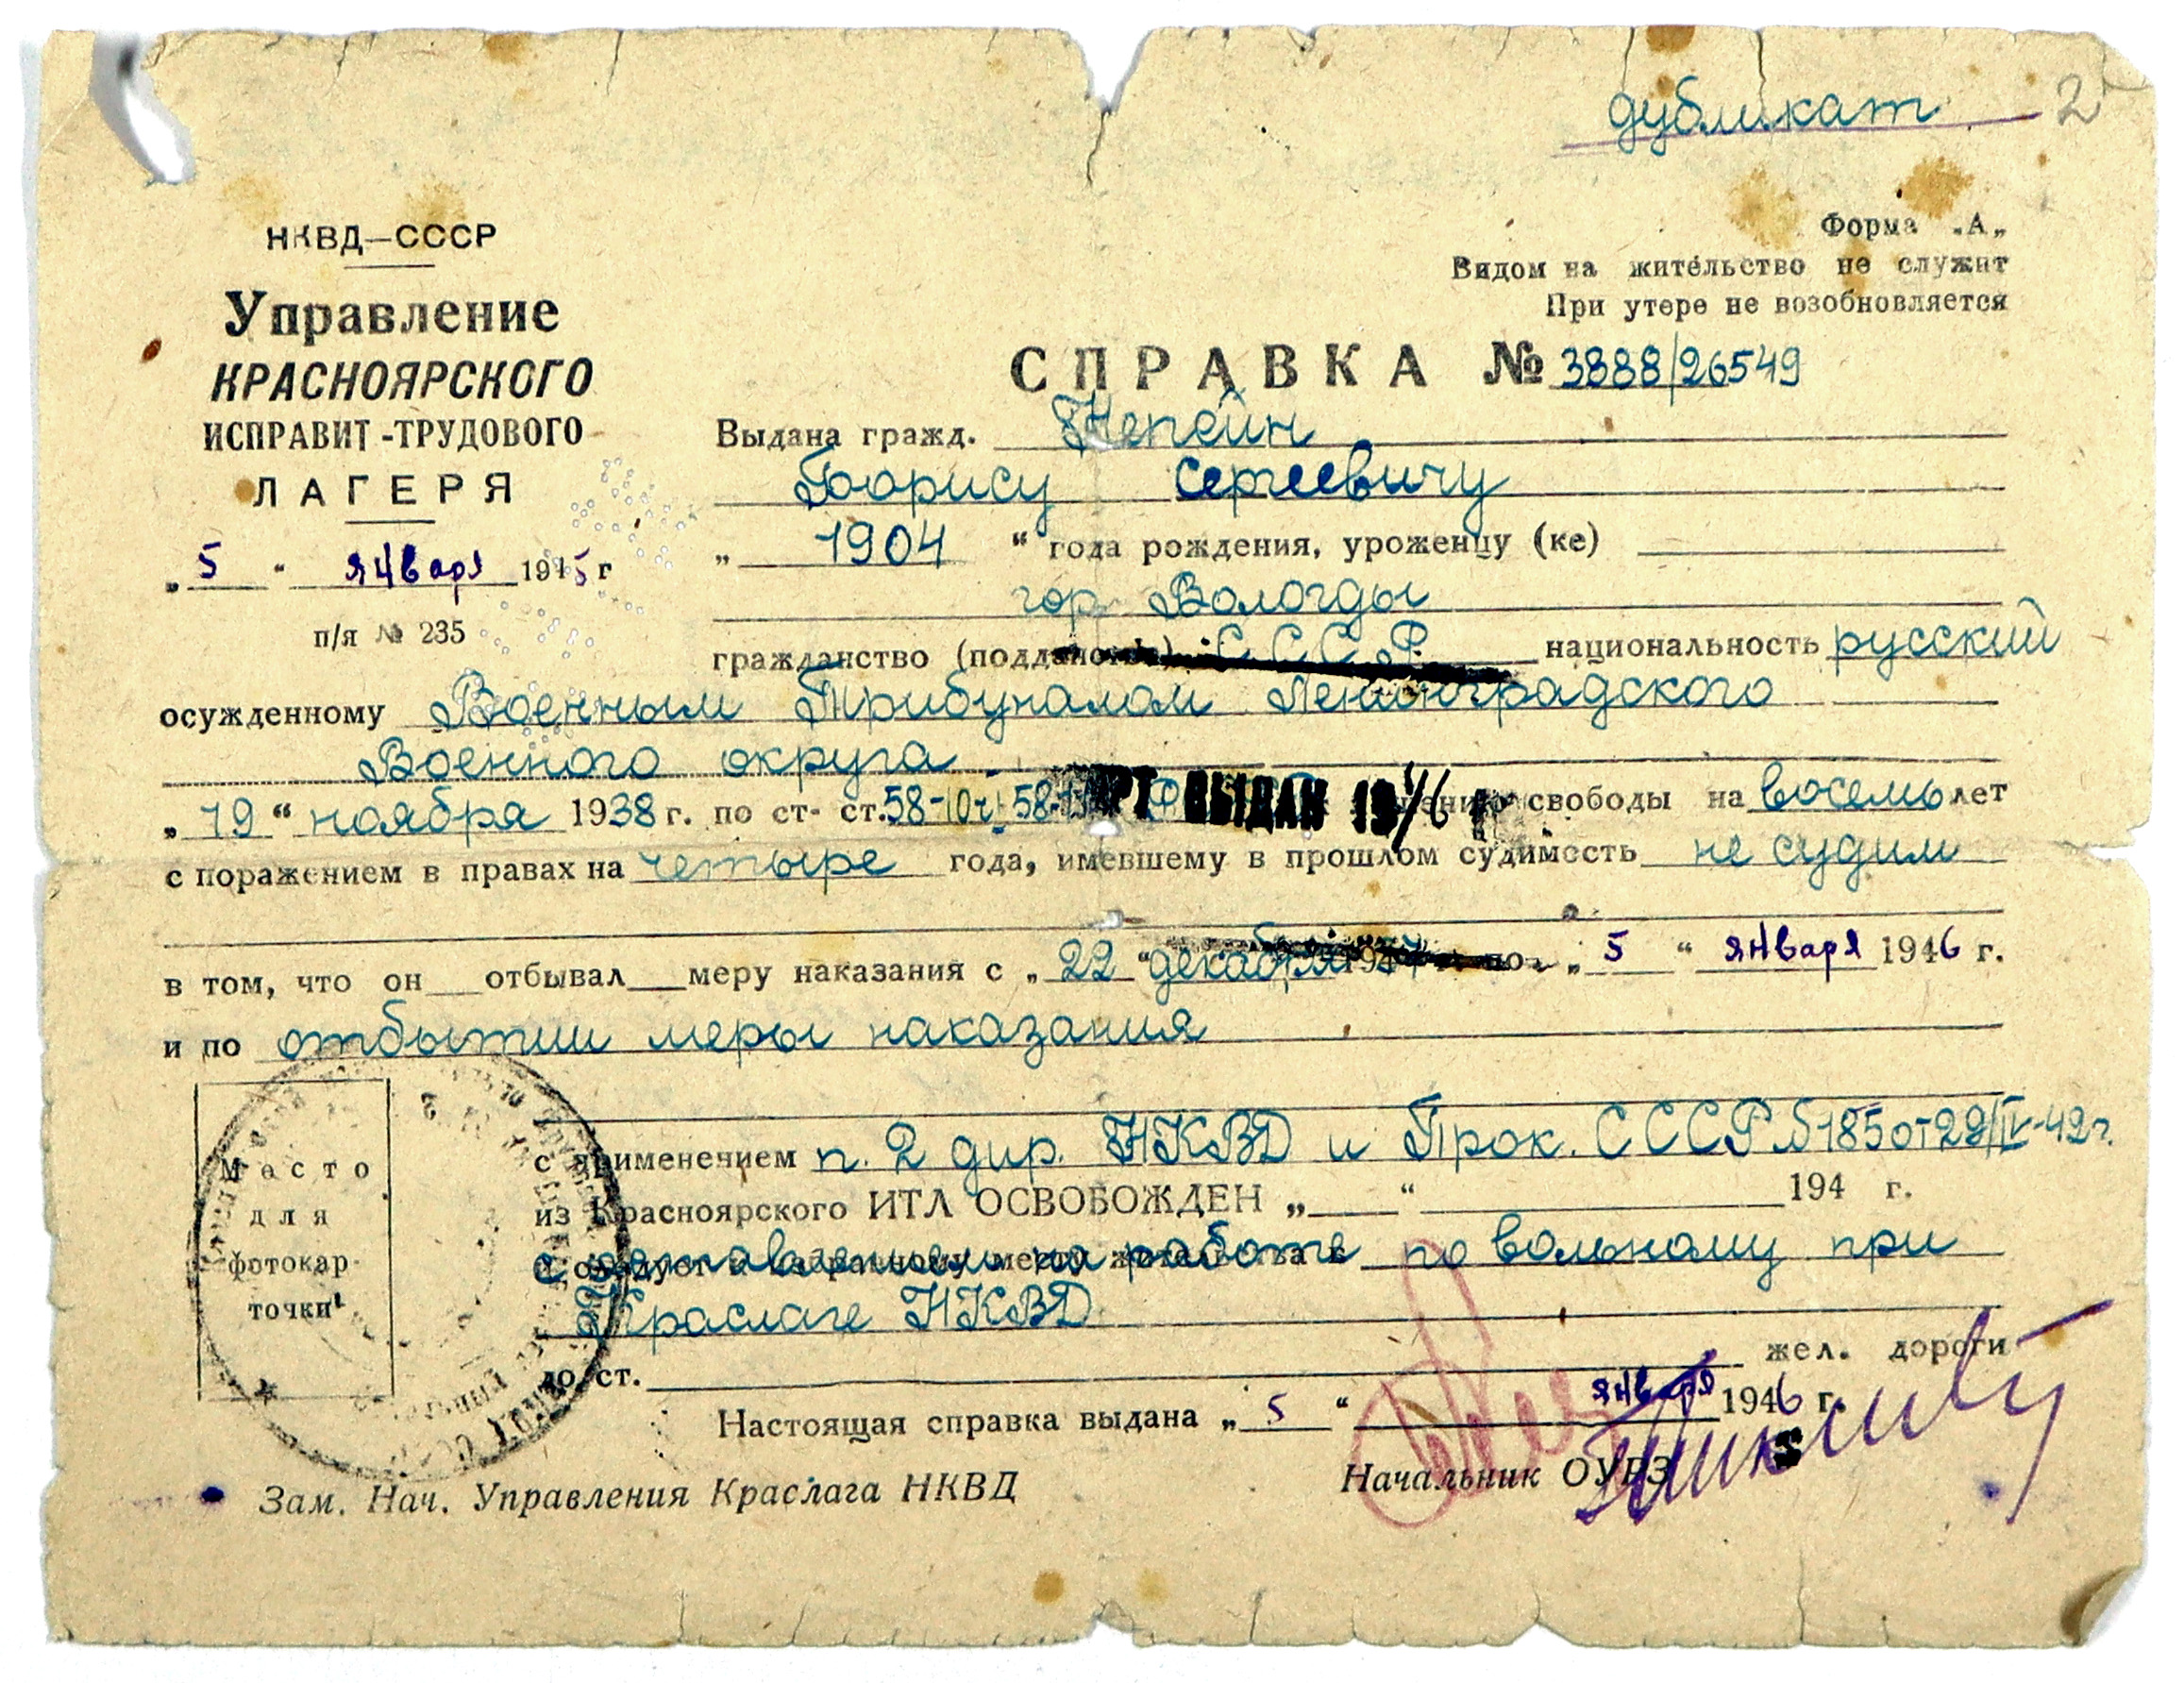 дубликат 2
НКВД—СССР
Управление
КРАСНОЯРСКОГО
ИСПРАВИТ-ТРУДОВОГО
ЛАГЕРЯ
„5" января 1945 г
п/я № 235
Форма „А„
Видом на жительство не служит
При утере не возобновляется
СПРАВКА № 3888/26549
Выдана гражд. Непеин
Борису Сергеевичу
„ 1904 " года рождения, уроженцу (ке)
гор. Вологды
гражданство (подданство) СССР национальность русский
осужденному Военным Трибуналом Ленинградского
Военного округа
„19" ноября 1938 г. по ст- ст. 58-10 ч. 58- ВЫДАН 19 свободы на восемь лет
с поражением в правах на четыре года, имевшему в прошлом судимость не судим
в том, что он отбывал меру наказания с „22" декабря 1937 по „5" января 1946 г.
и по отбытии меры наказания
Масто
для
фотокар-
точки
с применением п. 2 дир. НКВД и Прок. СССР № 185 от 29/IV-42 г.
из Красноярского ИТЛ ОСВОБОЖДЕН „ " 194 г.
с оставлением на работе по вольному при
Краслаге НКВД
до ст. жел. дороги
Настоящая справка выдана „5" января 1946 г.
Зам. Нач. Управления Краслага НКВД
Начальник ОУРЗ